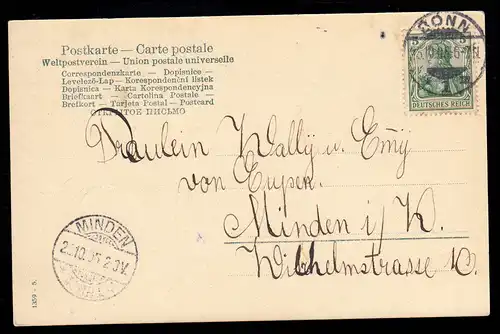 Postkarte — Carte postale
Weltpostverein — Union postale universelle
Correspondenzkarte — Dopisnice —
Levelező-Lap — Korespondenční lístek
Dopisnica — Karta Korespondencyjna
Briefkaart — Cartolina Postale —
Brefkort — Tarjeta Postal — Postcard
ОТКРЫТОЕ ПИСЬМО
BONN
5
5
DEUTSCHES REICH
Fräulein Wally u. Emmy
von
Minden i/W.
Wilhelmstrasse 10.
MINDEN
1359 - 5.